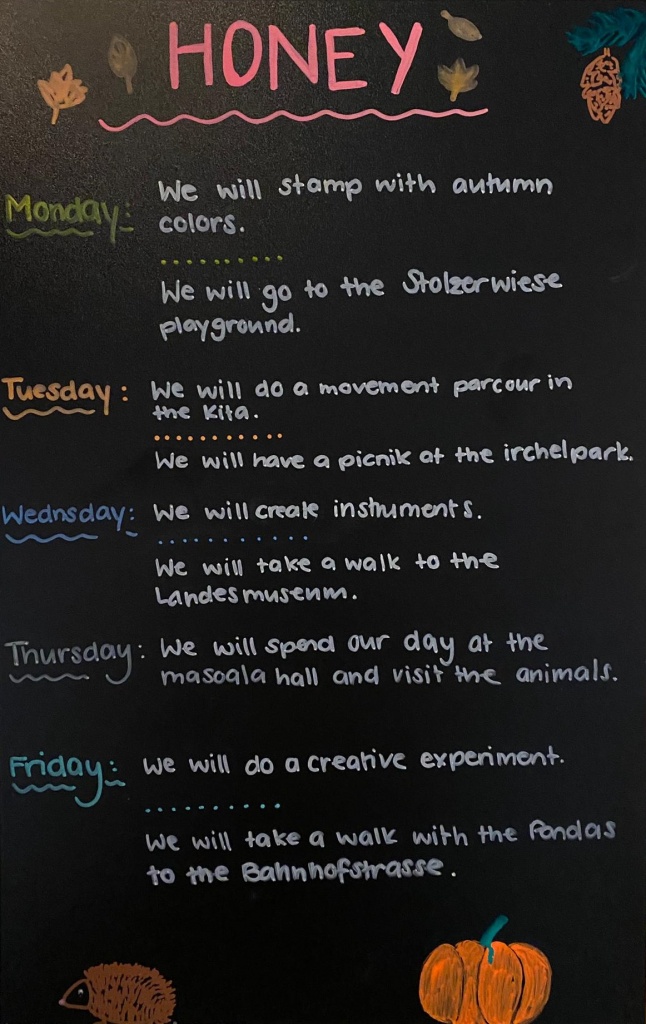 HONEY
Monday: We will stamp with autumn
colors.
We will go to the Stolzerwiese
playground.
Tuesday: We will do a movement parcour in
the Kita.
We will have a picnik at the irchelpark.
Wednsday: We will create instruments.
We will take a walk to the
Landesmuseum.
Thursday: We will spend our day at the
masoala hall and visit the animals.
Friday: We will do a creative experiment.
We will take a walk with the Pandas
to the Bahnhofstrasse.